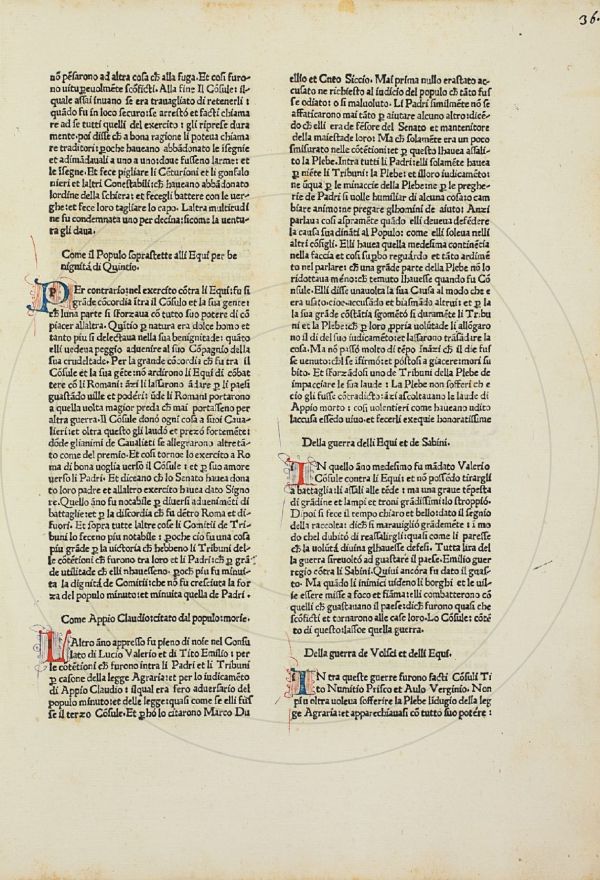 36.
nō pēsarono ad altra cosa cħ alla fuga. Et cosi furo-
no vitupevolmēte scōficti. Alla fine Il Cōsule: il-
quale assai invano se era travagliato di retenerli:
quādo fu in loco securo: se arrestò et facti chiama
re ad se tutti quelli del exercito: gli riprese dura
mente. poi disse cħ a bona ragione li poteua chiama
re traditori: ꝑoche haueano abbādonato le īsegnie
et adimādauali a uno a uno: doue fusseno larme: et
le īsegne. Et fece pigliare li Cēturioni et li gonfalo
nieri et laltri Conestabili: cħ haueano abbādonato
lordine della schiera: et fecegli battere con le uer-
ghe: et fece loro tagliare lo capo. Laltra multitudi
ne fu condemnata uno per decina: sicome la uentu-
ra gli daua.
Come il Populo soprastette alli Equi per be
nignità di Quintio.
PEr contrario: nel exercito cōtra li Equi: fu si
grāde cōcordia ītra il Cōsule et la sua gente:
cħ luna parte si sforzaua cō tutto suo potere di cō
piacer allaltra. Quītio ꝑ natura era dolce homo et
tanto piu si delectaua nella sua benignitade: quāto
elli uedeua peggio aduenire al suo Cōpagnio della
sua crudeltade. Per la grande cōcordia cħ fu tra il
Cōsule et la sua gēte: nō ardirono li Equi di cōbat
tere cō li Romani: āzi li lassarono ādare ꝑ li paesi
guastādo uille et poderi: ūde li Romani portarono
a quella uolta magior preda cħ mai portasseno per
altra guerra. Il Cōsule donò ogni cosa a suoi Caua-
lieri: et oltra questo gli laudò et prezò fortemēte:
dōde glianimi de Caualieri se allegrarono altretā-
to come del premio. Et cosi tornoe lo exercito a Ro
ma di bona uoglia uerso il Cōsule: et ꝑ suo amore
uerso li Padri. Et diceano cħ lo Senato haueua dona
to loro padre et allaltro exercito haueua dato Signo
re. Quello āno fu notabile ꝑ diuersi aduenimēti di
battaglie: et ꝑ la discordia cħ fu dētro Roma et di-
fuori. Et sopra tutte laltre cose li Comitii de Tri-
buni lo feceno piu notabile: ꝑoche ciò fu una cosa
piu grāde ꝑ la uictoria cħ hebbeno li Tribuni del-
le cōtētioni cħ furono tra loro et li Padri: cħ ꝑ grā
de utilitade cħ elli nhauesseno. ꝑocħ piu fu minui-
ta la dignità de Comitii: che nō fu cresciuta la for
za del populo minuto: et minuita quella de Padri.
Come Appio Claudio: citato dal populo: morse.
LAltro āno appresso fu pieno di noie nel Consu
lato di Lucio Valerio et di Tito Emilio: per
le cōtētioni cħ furono intra li Padri et li Tribuni
ꝑ casone della legge Agraria: et per lo iudicamēto
di Appio Claudio: ilqual era fero aduersario del
populo minuto: et delle legge: quasi come se elli fus
se il terzo Cōsule. Et ꝑhò lo citarono Marco Du
ellio et Cneo Siccio. Mai prima nullo era stato ac-
cusato ne richiesto al iudicio del populo cħ tāto fus
se odiato: o si maluoluto. Li Padri similmēte nō se
affaticarono mai tāto ꝑ aiutare alcuno altro: dicē-
do cħ elli era defēsore del Senato et mantenitore
della maiestade loro: Ma cħ solamēte era un poco
smisurato nelle cōtētioni: et ꝑ questo lhauea assali-
to la Plebe. Intra tutti li Padri: elli solamēte hauea
ꝑ niēte li Tribuni: la Plebe: et illoro iudicamēto:
ne ūqua ꝑ le minaccie della Plebe: ne ꝑ le preghe-
rie de Padri si uolle humiliar di alcuna cosa: o cam
biare animo: ne pregare glhomini de aiuto: Anzi
parlaua cosi aspramēte quādo elli deueua defēdere
la causa sua dināti al Populo: come elli soleua nelli
altri cōsigli. Elli hauea quella medesima continētia
nella faccia et cosi suꝑbo reguardo et tāto ardimē
to nel parlare: cħ una grāde parte della Plebe nō lo
ridottaua mēno: cħ temuto lhauesse quando fu Cō
nsule. Elli disse una uolta la sua Causa al modo che e
ra usato: cioe accusādo et biasmādo altrui: et ꝑ la
la sua grāde cōstātia sgomētò si duramēte li Tribu
ni et la Plebe: cħ ꝑ loro ꝓpria uolūtade li allōgaro
no il di del suo iudicamēto: et lassarono trasādare la
cosa. Ma nō passò molto di tēpo īnāzi cħ il die fus
se uenuto: cħl se īfirmò: et pōstosi a giacere: morì su
bito. Et sforzādosi uno de Tribuni della Plebe de
impacciare le sua laude: La Plebe non sofferi ch e
ciò gli fusse cōtradicto: āzi ascoltauano le laude di
Appio morto: cosi uolentieri come haueano udito
laccusa essedo uiuo. et fecerli exequie honoratissime
Della guerra delli Equi et de Sabini.
IN quello āno medesimo fu mādato Valerio
Cōsule contra li Equi: et nō possēdo tirargli
a battaglia: di assali alle tēde: ma una graue tēpesta
di grādine et lampi et troni grādissimi: lo stroppiò.
Dipoi si fece il tempo chiaro et bello: dato il segno
della raccolta: dicħ si marauigliò grādemēte: i mo
do chel dubitò di reassalirgli: quasi come li paresse
cħ la volūtà diuina glhauesse defesi. Tutta lira del
la guerra si reuoltò ad guastare il paese. Emilio guer
regio cōtra li Sabini. Quiui ancōra fu dato il guas-
to. Ma quādo li inimici uideno li borghi et le uil-
le essere misse a foco et fiāma: elli combatterono cō
quelli cħ guastauano il paese: dicħ furono quasi che
scōficti et tornarono alle case loro. Lo Cōsule: cōtē
to di questo: lassoe quella guerra.
Della guerra de Volsci et delli Equi.
INtra queste guerre furono facti Cōsuli Ti
to Numitio Prisco et Aulo Verginio. Non
piu oltra uoleua sofferire la Plebe lidugio della leg
ge Agraria: et apparechiauasi cō tutto suo potere: